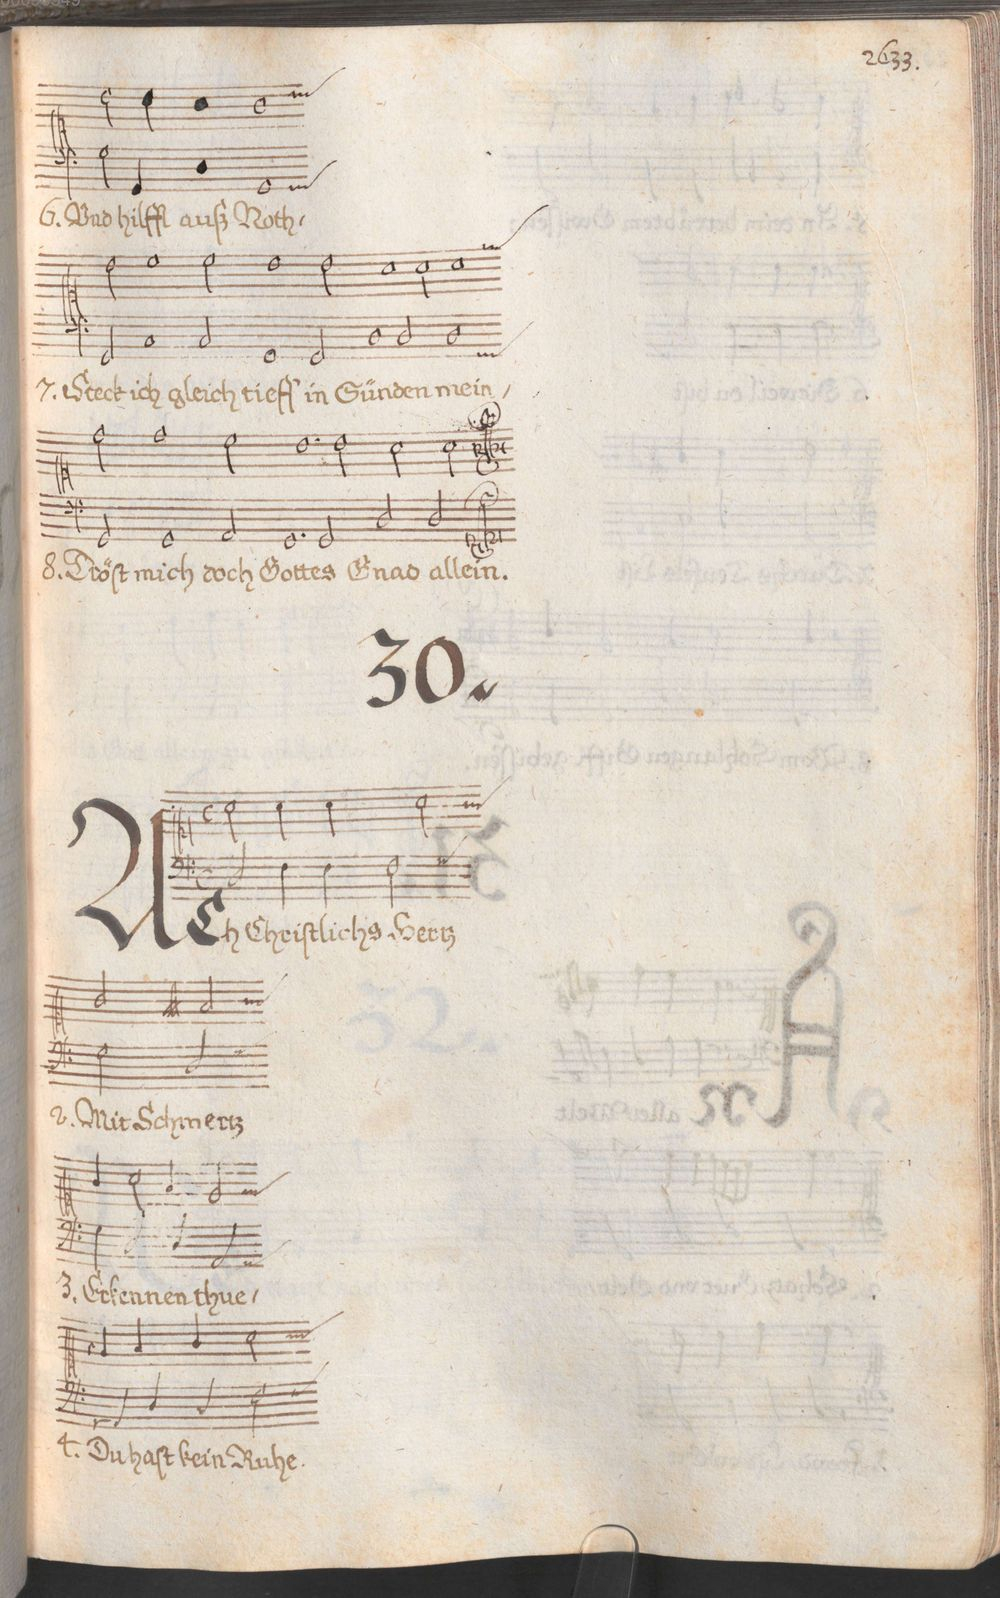 2633.
6. Vnd hilfft auß Noth,
7. Steck ich gleich tieff in Sünden mein,
8. Tröst mich doch Gottes Gnad allein.
30.
ACh Christlichs Hertz
2. Mit Schmertz
3. Erkennen thue,
4. Du hast kein Ruhe.